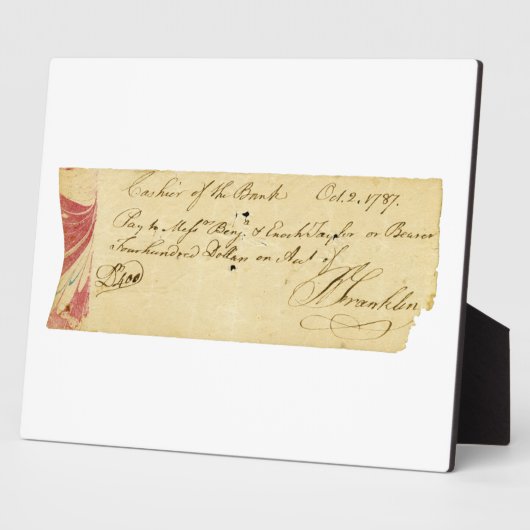 Cashier of the Bank Oct. 2. 1787.
Pay to Messrs Benj. & Enoch Taylor or Bearer
Four hundred Dollars on Act of
Drs 400
B Franklin